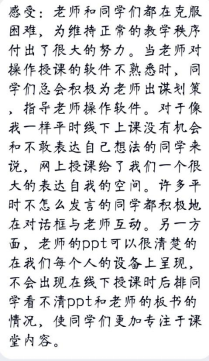 感受：老师和同学们都在克服
困难，为维持正常的教学秩序
付出了很大的努力。当老师对
操作授课的软件不熟悉时，同
学们总会积极为老师出谋划策
，指导老师操作软件。对于像
我一样平时线下上课没有机会
和不敢表达自己想法的同学来
说，网上授课给了我们一个很
大的表达自我的空间。许多平
时不怎么发言的同学都积极地
在对话框与老师互动。另一方
面，老师的ppt可以很清楚的
在我们每个人的设备上呈现，
不会出现在线下授课时后排同
学看不清ppt和老师的板书的
情况，使同学们更加专注于课
堂内容。